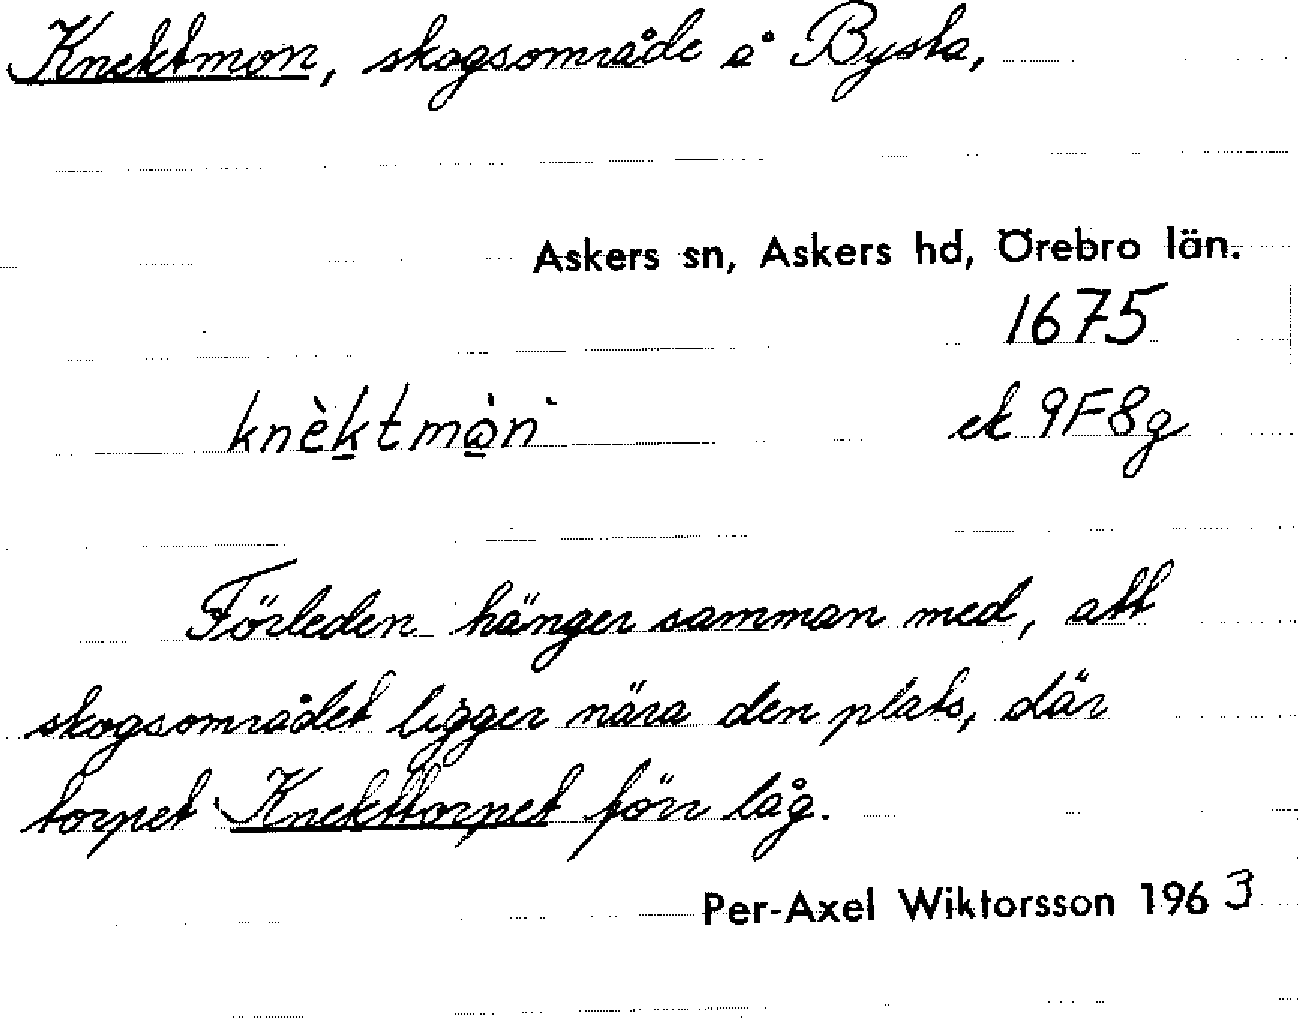 Knektmon, skogsområde å Bysta,
Askers sn, Askers hd, Örebro län.
1675
knèktmòn` ek 9F8g
Förleden hänger samman med, att
skogsområdet ligger nära den plats, där
torpet Knekttorpet förr låg.
Per-Axel Wiktorsson 1963